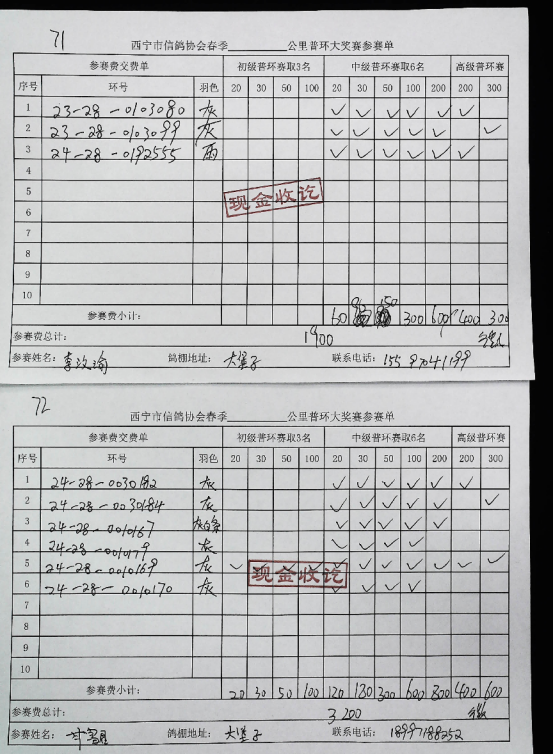 71
西宁市信鸽协会春季 公里普环大奖赛参赛单
参赛费交费单 初级普环赛取3名 中级普环赛取6名 高级普环赛
序号 环号 羽色 20 30 50 100 20 30 50 100 200 200 300
1 23-28-0103080 灰 ✓ ✓ ✓ ✓ ✓ ✓
2 23-28-0103099 灰 ✓ ✓ ✓ ✓ ✓ ✓
3 24-28-0192555 雨 ✓ ✓ ✓ ✓ ✓ ✓
4
5
现金收讫
6
7
8
9
10
参赛费小计: 60 150 300 600 400 300
参赛费总计: 1900
参赛姓名: 鸽棚地址: 大堡子 联系电话: 155 97041199
72
西宁市信鸽协会春季 公里普环大奖赛参赛单
参赛费交费单 初级普环赛取3名 中级普环赛取6名 高级普环赛
序号 环号 羽色 20 30 50 100 20 30 50 100 200 200 300
1 24-28-0030182 灰 ✓ ✓ ✓ ✓ ✓ ✓
2 24-28-0030184 灰 ✓ ✓ ✓ ✓ ✓ ✓
3 24-28-0010167 灰白条 ✓ ✓ ✓ ✓ ✓
4 24-28-0010179 灰 ✓ ✓ ✓ ✓
5 24-28-0010169 灰 ✓ ✓ ✓ ✓ ✓ ✓ ✓ ✓ ✓ ✓ ✓
现金收讫
6 24-28-0010170 灰 ✓ ✓ ✓ ✓
7
8
9
10
参赛费小计: 20 30 50 100 120 180 300 600 800 400 600
参赛费总计: 3200
参赛姓名: 鸽棚地址: 大堡子 联系电话: 18997188252